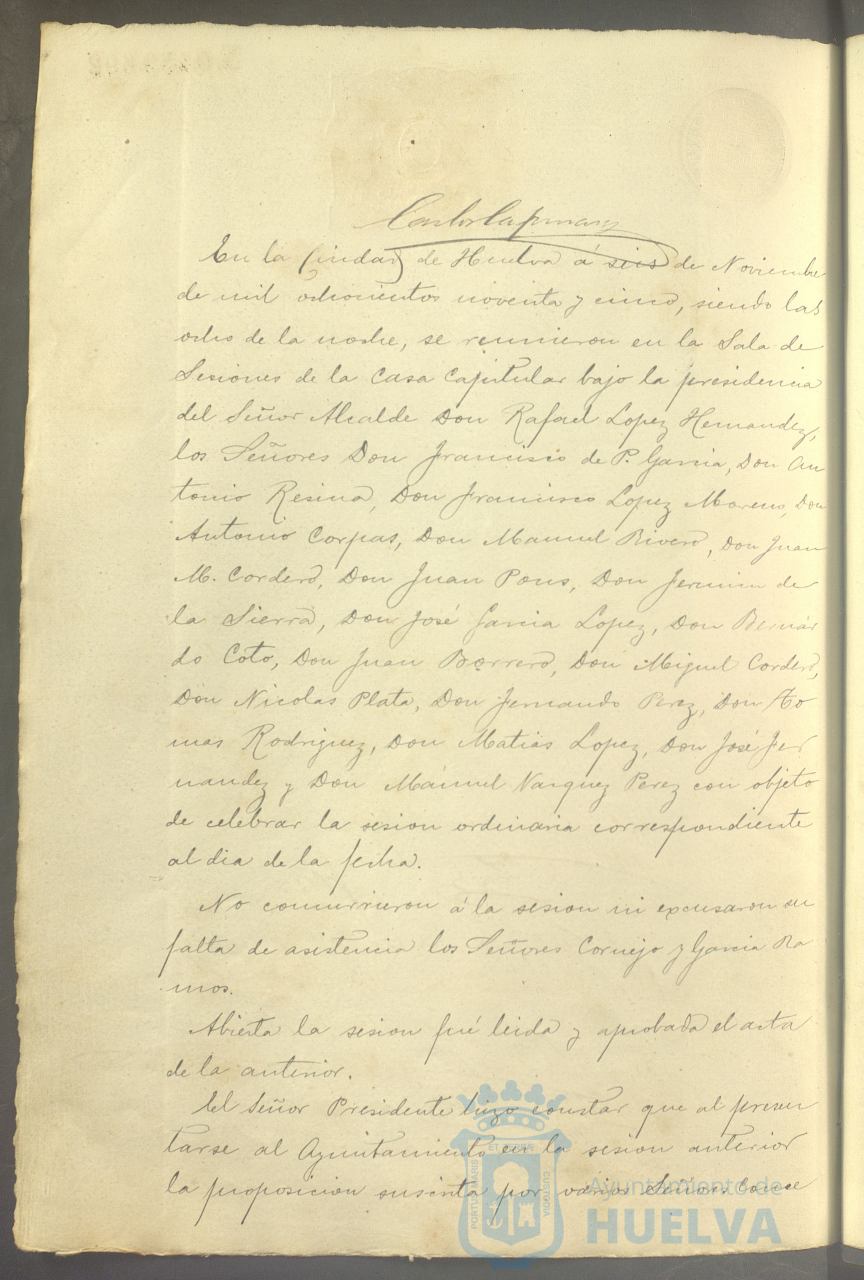 En la Ciudad de Huelva á seis de Noviembre
de mil ochocientos noventa y cinco, siendo las
ocho de la noche, se reunieron en la Sala de
Sesiones de la Casa Capitular bajo la presidencia
del Señor Alcalde Don Rafael Lopez Hernandez,
los Señores Don Francisco de P. Garcia, Don An
tonio Resina, Don Francisco Lopez Moreno, Don
Antonio Corpas, Don Manuel Rivero, Don Juan
M. Cordero, Don Juan Pons, Don Fermin de
la Sierra, Don José Garcia Lopez, Don Bernar
do Coto, Don Juan Borrero, Don Miguel Cordero,
Don Nicolas Plata, Don Fernando Perez, Don To
mas Rodriguez, Don Matias Lopez, Don José Fer
nandez y Don Manuel Vazquez Perez con objeto
de celebrar la sesion ordinaria correspondiente
al dia de la fecha.
No concurrieron á la sesion ni excusaron su
falta de asistencia los Señores Cornejo y Garcia Ra
mos.
Abierta la sesion fué leida y aprobada el acta
de la anterior.
El Señor Presidente hizo constar que al presen
tarse al Ayuntamiento en la sesion anterior
la proposicion suscrita por varios Señores Conce
PORTUS MARIS ET TERRE CUSTODIA
Ayuntamiento de
HUELVA